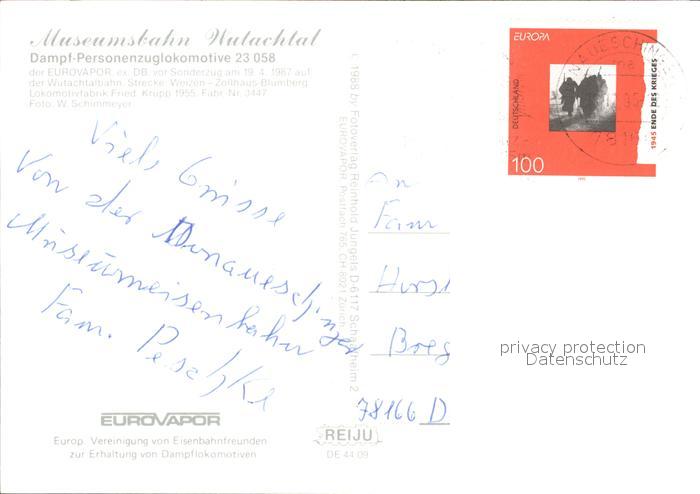 Museumsbahn Wutachtal
Dampf-Personenzuglokomotive 23 058
der EUROVAPOR, ex. DB, vor Sonderzug am 19. 4. 1987 auf
der Wutachtalbahn. Strecke: Weizen – Zollhaus-Blumberg.
Lokomotivfabrik Fried. Krupp 1955, Fabr.-Nr. 3447.
Foto: W. Schimmeyer
Viele Grüsse
von der Donaueschinger
Museumseisenbahn
Fam. Peschke
EUROVAPOR
Europ. Vereinigung von Eisenbahnfreunden
zur Erhaltung von Dampflokomotiven
© 1988 by Fotoverlag Reinhold Jungels D-6117 Schaafheim 2
EUROVAPOR Postfach 765, CH-8021 Zürich
REIJU
DE 44 09
EUROPA
DEUTSCHLAND
100
1945 ENDE DES KRIEGES
1995
DONAUESCHINGEN
An
Fam
Horst
Breg
78166 D
privacy protection
Datenschutz